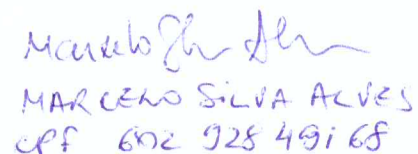 Marcelo Silva Alves
MARCELO SILVA ALVES
CPF 602 928 491 68